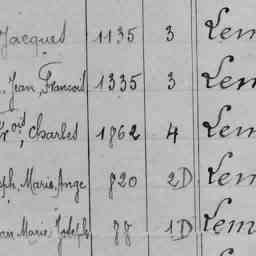 Jacques 1135 3 Lem
Jean François 1335 3 Lem
Frois, Charles 1862 4 Lem
ph, Marie, Ange 820 2D Lem
an Marie Joseph 88 1D Lem